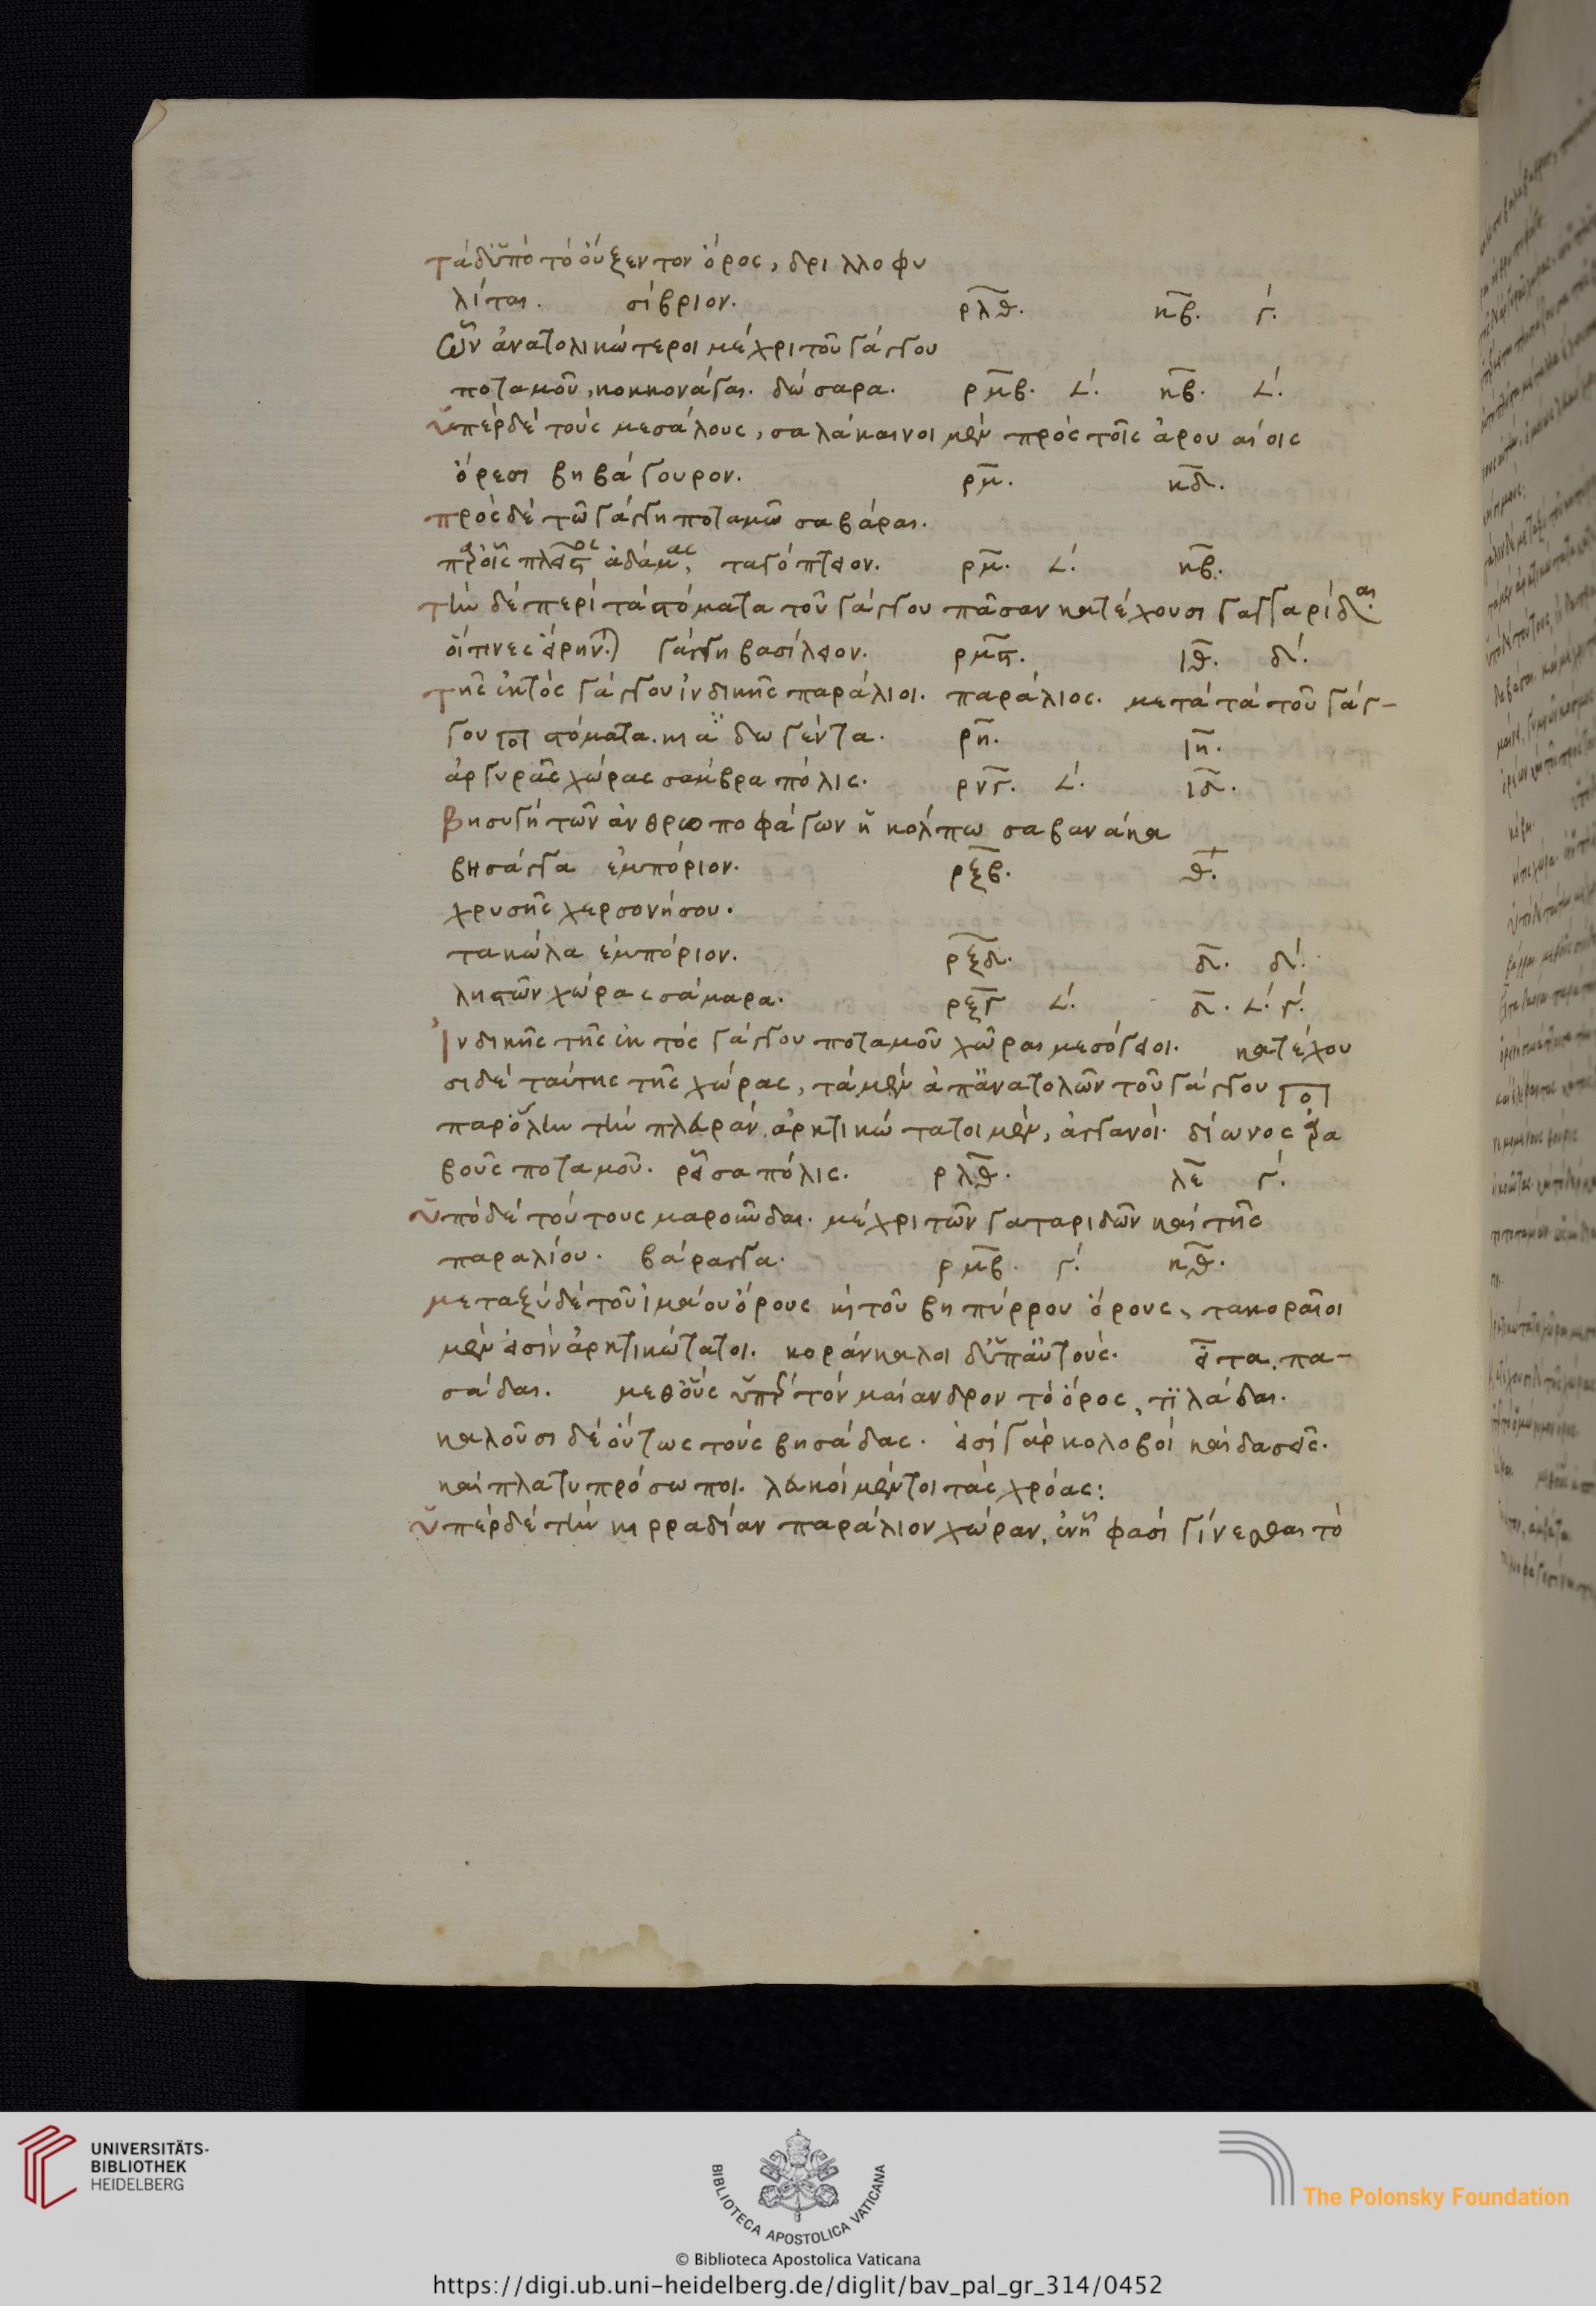 τὰ δ̓ὑπὸ τὸ οὔξεντον ὄρος, δριλλοφυ
λίται. σίβριον. ρλθ. κβ. γ´.
ὧν ἀνατολικώτεροι μέχρι τοῦ γάγγου
ποταμοῦ, κοκκονάγαι. δώσαρα. ρμβ. ∠´. κβ. ∠´.
ὑπὲρ δὲ τοὺς μεσάλους, σαλάκαινοι μὲν πρὸς τοῖς ἀρουαίοις
ὄρεσι βηβάγουρον. ρμ. κδ.
πρὸς δὲ τῶ γάγγη ποταμῶ σαβάραι.
παρ᾽ οἷς πλεῖστος ἀδάμας, ταγόπτειον. ρμ. ∠´. κβ.
τὴν δὲ περὶ τὰ στόματα τοῦ γάγγου πᾶσαν κατέχουσι γαγγαρίδαι.
οἵτινες εἴρηνται) γάγγη βασίλειον. ρμϛ. ιθ. δ´.
τῆς ἐκτὸς γάγγου ἰνδικῆς παράλιοι. παράλιος. μετὰ τὰ τοῦ γάγ-
γου στόματα. κιαδωγέντα. ρν. ιη.
ἀργυρᾶς χώρας σακβρα πόλις. ρνγ. ∠´. ιδ.
βησυγῆτῶν ἀνθρωποφάγων ἢ κόλπω σαβανάκα
βησάγγα ἐμπόριον. ρξβ. θ.
χρυσῆς χερσονήσου.
τακώλα ἐμπόριον. ρξδ. δ. δ´.
ληστῶν χώρας σάμαρα. ρξγ ∠´. δ. ∠´. γ´.
Ἰνδικῆς τῆς ἐκτὸς γάγγου ποταμοῦ χῶραι μεσόγειοι. κατέχου
σι δὲ ταύτης τῆς χώρας, τὰ μὲν ἀπ̓ἀνατολῶν τοῦ γάγγου
παρ᾽ ὅλην τὴν πλευράν. ἀρκτικώτατοι μὲν, ἀγγανοί. δίωνος ρα
βοῦς ποταμοῦ. ρεῖσα πόλις. ρλθ. λε γ´.
ὑπὸ δὲ τούτους μαροῦνδαι. μέχρι τῶν γαγαριδῶν καὶ τῆς
παραλίου. βάραγγα. ρμβ. γ´. κθ.
μεταξὺ δὲ τοῦ ἰμαίου ὄρους κὶ τοῦ βηπύρρου ὄρους, τακοραῖοι
μὲν εἰσὶν ἀρκτικώτατοι. κοράνκαλοι δ̓ὑπ̓αὐτούς. εἶτα, πα-
σάδαι. μεθ̓οὓς ὑπὲρ τὸν μαίανδρον τὸ ὄρος, τϊλάδαι.
καλοῦσι δὲ οὕτως τοὺς βησάδας. εἰσὶ γὰρ κολοβοὶ καὶ δασεῖς.
καὶ πλατυπρόσωποι. λευκοὶ μέντοι τὰς χρόας:
ὑπὲρ δὲ τὴν κιρραδίαν παράλιον χώραν, ἐν ᾗ φασὶ γίνεσθαι τὸ
UNIVERSITÄTS-
BIBLIOTHEK
HEIDELBERG
BIBLIOTECA APOSTOLICA VATICANA
The Polonsky Foundation
© Biblioteca Apostolica Vaticana
https://digi.ub.uni-heidelberg.de/diglit/bav_pal_gr_314/0452